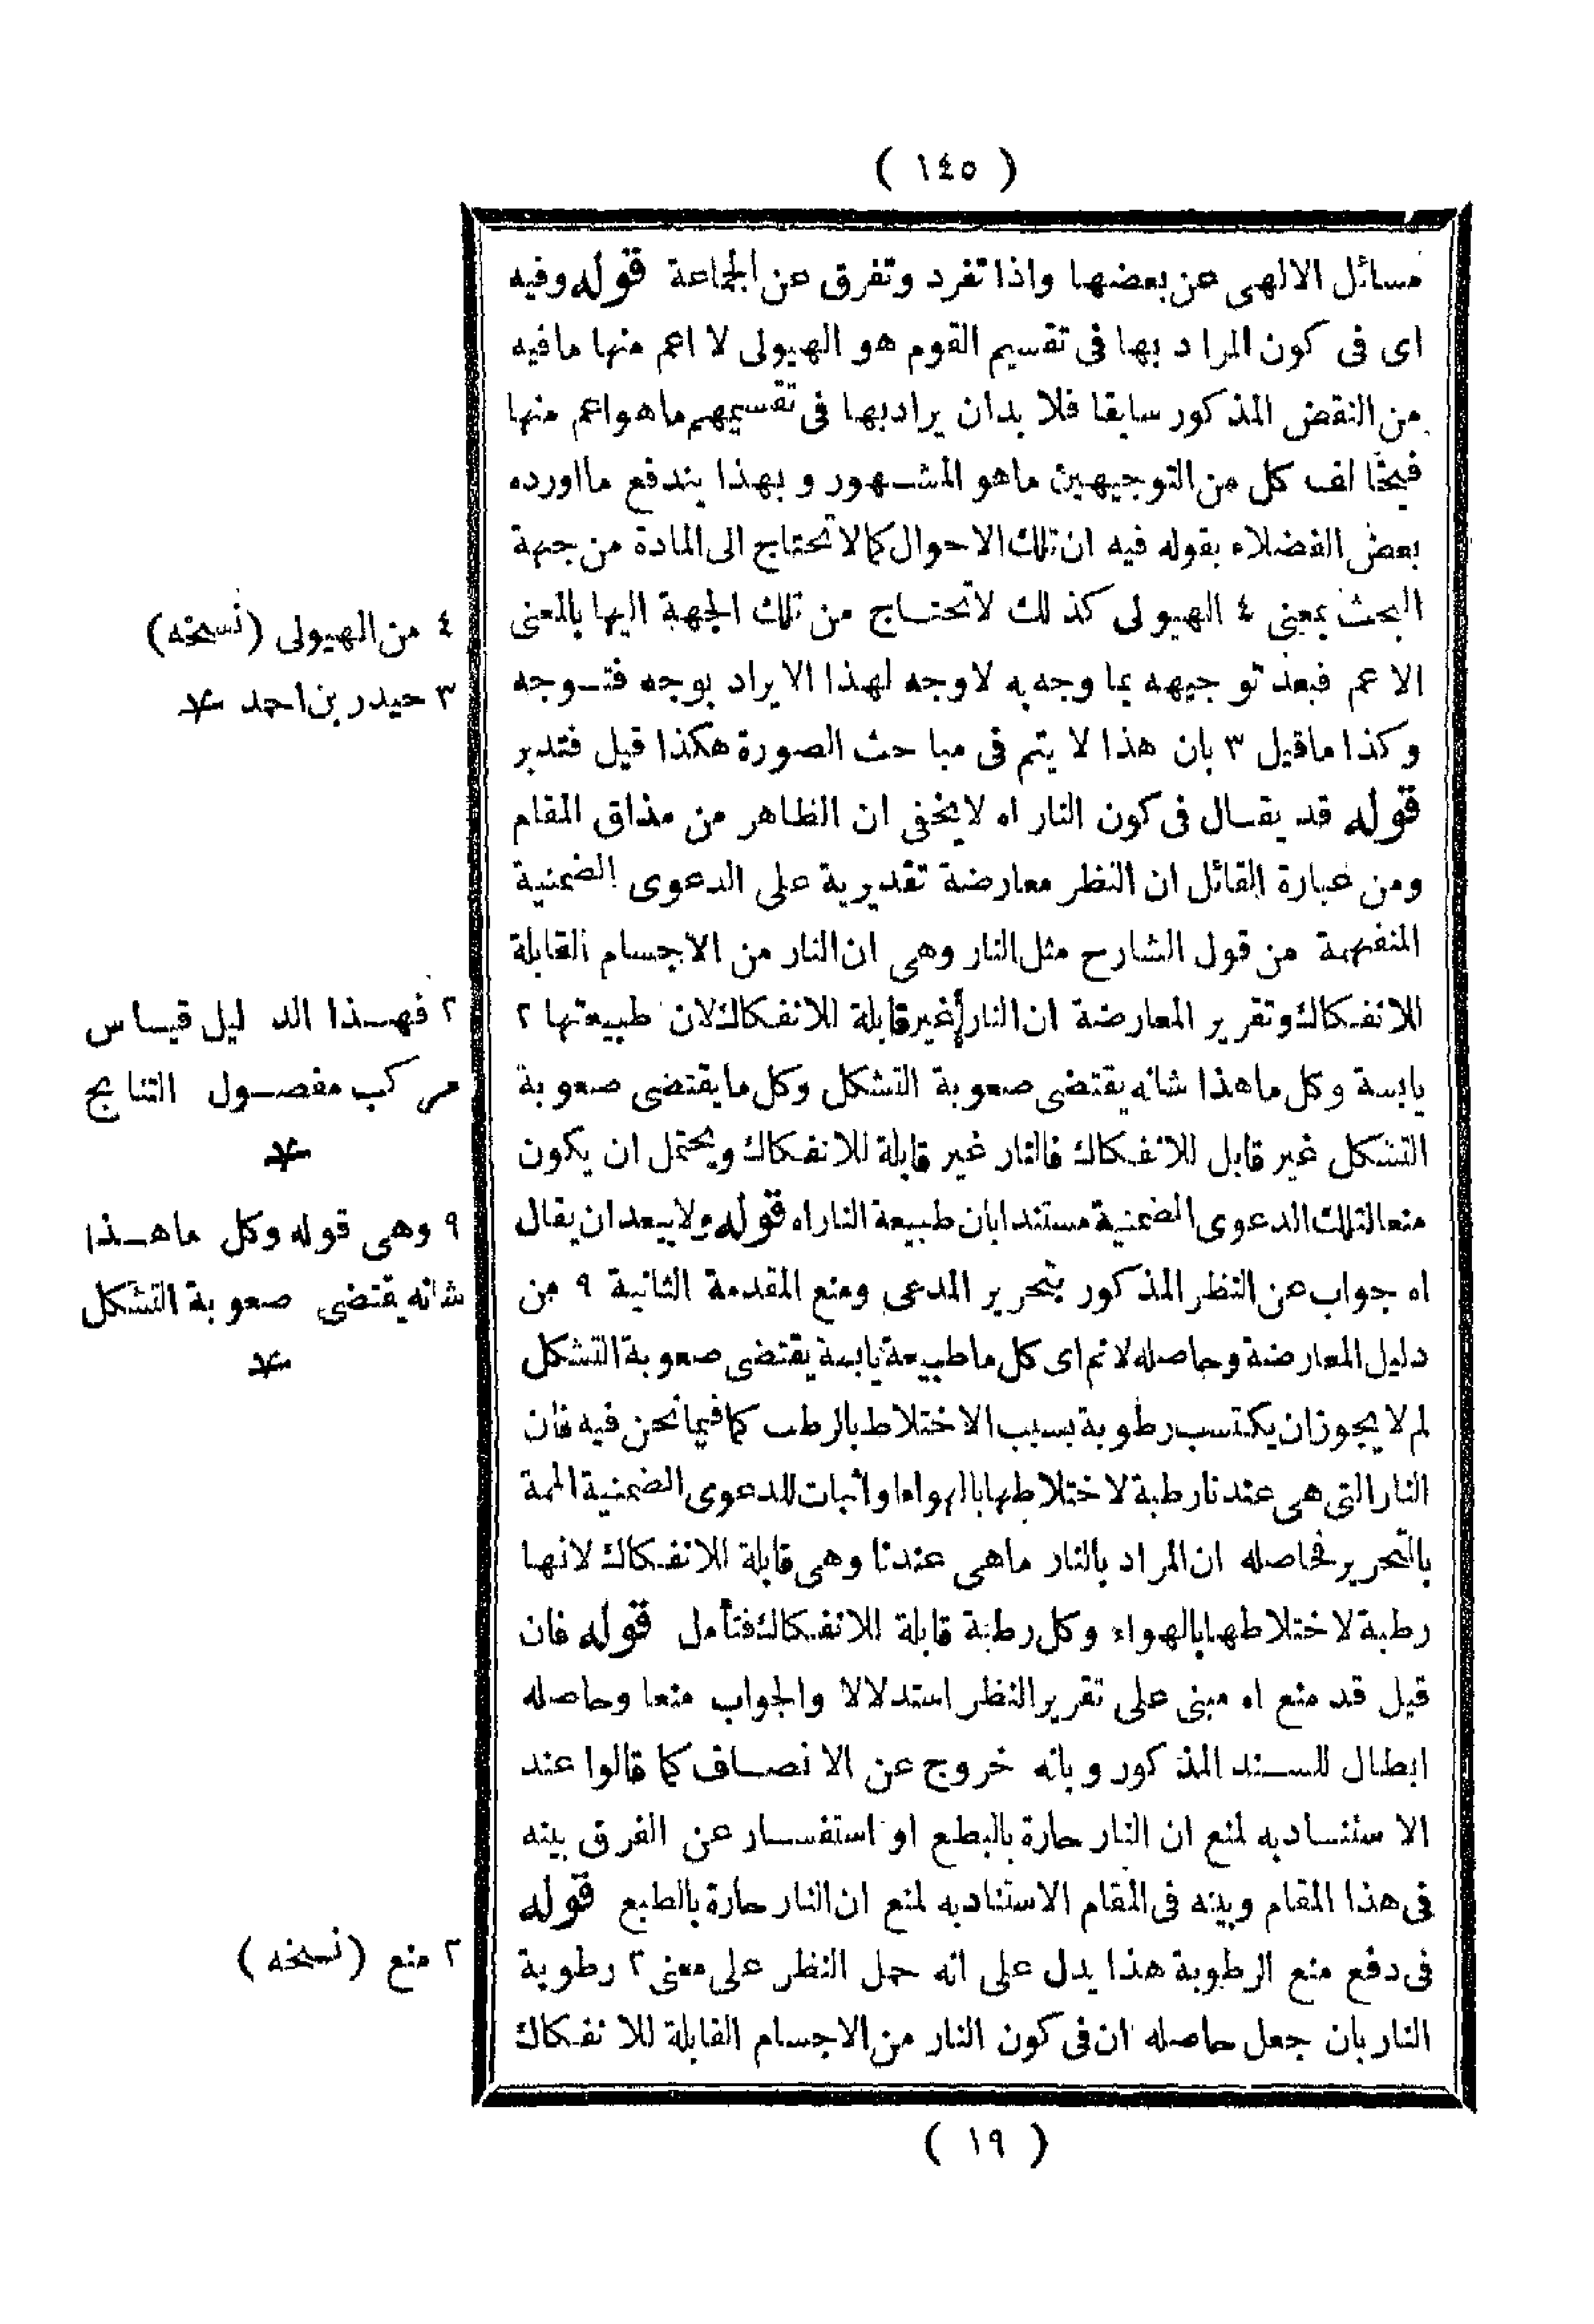 ( ١٤٥ )
مسائل الالهى عن بعضها واذا تفرد وتفرق عن الجماعة قوله وفيه
اى فى كون المراد بها فى تقسيم القوم هو الهيولى لا اعم منها مافيه
من النقض المذكور سابقا فلا بد ان يراد بها فى تقسيمهم ما هو اعم منها
فيخالف كل من التوجيهين ماهو المشهور وبهذا يندفع ما اورده
بعض الفضلاء بقوله فيه ان تلك الاحوال كما لا تحتاج الى المادة من جهة
البحث بمعنى ٤ الهيولى كذلك لا تحتاج من تلك الجهة اليها بالمعنى
الاعم فبعد توجيهه بما وجه به لاوجه لهذا الايراد بوجه فتوجه
وكذا ماقيل ٣ بان هذا لا يتم فى مباحث الصورة هكذا قيل فتدبر
قوله قد يقال فى كون النار اه لايخفى ان الظاهر من مذاق المقام
ومن عبارة القائل ان النظر معارضة تقديرية على الدعوى الضمنية
المنفهمة من قول الشارح مثل النار وهى ان النار من الاجسام القابلة
للانفكاك وتقرير المعارضة ان النار غير قابلة للانفكاك لان طبيعتها ٢
يابسة وكل ماهذا شانه يقتضى صعوبة التشكل وكل مايقتضى صعوبة
التشكل غير قابل للانفكاك فالنار غير قابلة للانفكاك ويحتمل ان يكون
منعا لتلك الدعوى الضمنية مستندا بان طبيعة النار اه قوله ولا يبعد ان يقال
اه جواب عن النظر المذكور بتحرير المدعى ومنع المقدمة الثانية ٩ من
دليل المعارضة وحاصله لانم اى كل ما طبيعة يابسة يقتضى صعوبة التشكل
لم لا يجوز ان يكتسب رطوبة بسبب الاختلاط بالرطب كما فيما نحن فيه فان
النار التى هى عندنا رطبة لاختلاطها بالهواء او اثبات للدعوى الضمنية الممة
بالتحرير فحاصله ان المراد بالنار ماهى عندنا وهى قابلة للانفكاك لانها
رطبة لاختلاطها بالهواء وكل رطبة قابلة للانفكاك فتأمل قوله فان
قيل قد منع اه مبنى على تقرير النظر استدلالا والجواب منعا وحاصله
ابطال للسند المذكور وبانه خروج عن الانصاف كما قالوا عند
الاستناد به لمنع ان النار حارة بالطبع او استفسار عن الفرق بينه
فى هذا المقام وبينه فى المقام الاستناد به لمنع ان النار حارة بالطبع قوله
فى دفع منع الرطوبة هذا يدل على انه حمل النظر على معنى ٢ رطوبة
النار بان جعل حاصله ان فى كون النار من الاجسام القابلة للانفكاك
٤ من الهيولى (نسخه)
٣ حيدر بن احمد
٢ فهذا الدليل قياس
مركب مفصول النتايج
٩ وهى قوله وكل ماهذا
شانه يقتضى صعوبة التشكل
٢ منع (نسخه)
( ١٩ )